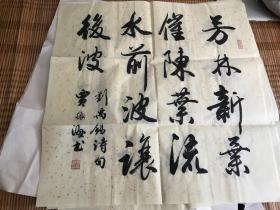 芳林新葉
催陳葉流
水前波讓
後波
劉禹錫詩句